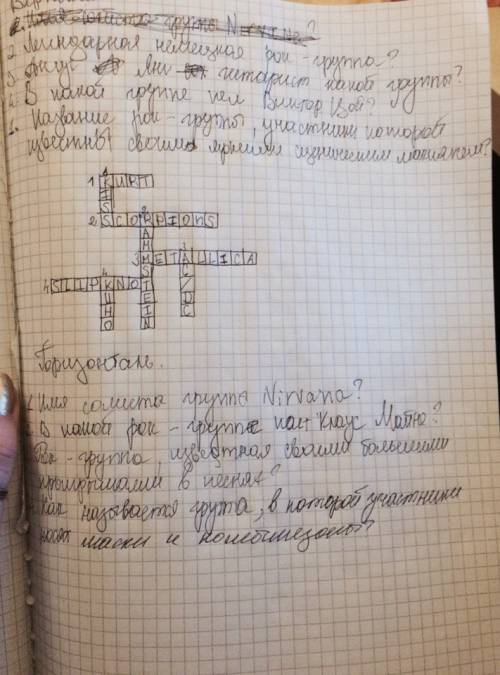 группы N
2. Легендарная немецкая рок-группа?
3. Ангус Янг гитарист какой группы?
4. В какой группе пел Виктор Цой?
1. Название рок-группы, участники которой
известны своими яркими сценическим макияжем?
1 KURT
ISS
2 SCORPIONS
AMMSTEIN
3 METALLICA
AC/DC
4 SLIPKNOT
КИНО
Горизонталь.
1. Имя солиста группы Nirvana?
2. В какой рок-группе поёт Клаус Майне?
Рок-группа, известная своими большими
в песнях?
Как называется группа, в которой участники
носят маски и комбинезоны?